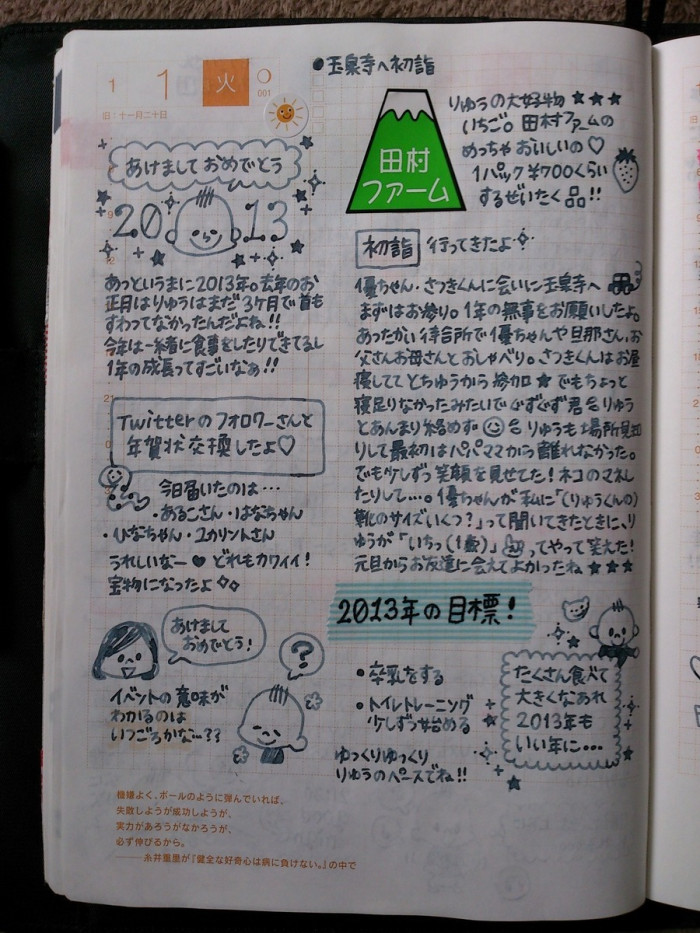 1 1 火
001
旧:十一月二十日
あけましておめでとう
2013
あっというまに2013年。去年のお
正月はりゅうはまだ3ヶ月で首も
すわってなかったんだよね!!
今年は一緒に食事をしたりできてるし
1年の成長ってすごいなぁ!!
Twitterのフォロワーさんと
年賀状交換したよ♡
今日届いたのは…
・あるこさん・はなちゃん
・ひなちゃん・ユカリントさん
うれしいなー♥どれもカワイイ!
宝物になったよ
あけまして
おめでとう!
イベントの意味が
わかるのは
いつごろかな…??
?
●玉泉寺へ初詣
田村
ファーム
りゅうの大好物★★★
いちご。田村ファームの
めっちゃおいしいの♡
1パック¥700くらい
するぜいたく品!!
初詣 行ってきたよ
優ちゃん・さつきくんに会いに玉泉寺へ
まずはお参り。1年の無事をお願いしたよ。
あったかい待合所で優ちゃんや旦那さん、お
父さんお母さんとおしゃべり。さつきくんはお昼
寝しててとちゅうから参加★でもちょっと
寝足りなかったみたいでぐずぐず君 りゅう
とあんまり絡めず りゅうも場所見知
りして最初はパパママから離れなかった。
でも少しずつ笑顔を見せてた!ネコのマネし
たりして…。優ちゃんが私に「(りゅうくんの)
靴のサイズいくつ?」って聞いてきたときに、り
ゅうが「いちっ(1歳)」ってやって笑えた!
元旦からお友達に会えてよかったね★★★
2013年の目標!
・卒乳をする
・トイレトレーニング
少しずつ始める
ゆっくりゆっくり
りゅうのペースでね!!
たくさん食べて
大きくなあれ
2013年も
いい年に…
機嫌よく、ボールのように弾んでいれば、
失敗しようが成功しようが、
実力があろうがなかろうが、
必ず伸びるから。
――糸井重里が『健全な好奇心は病に負けない。』の中で